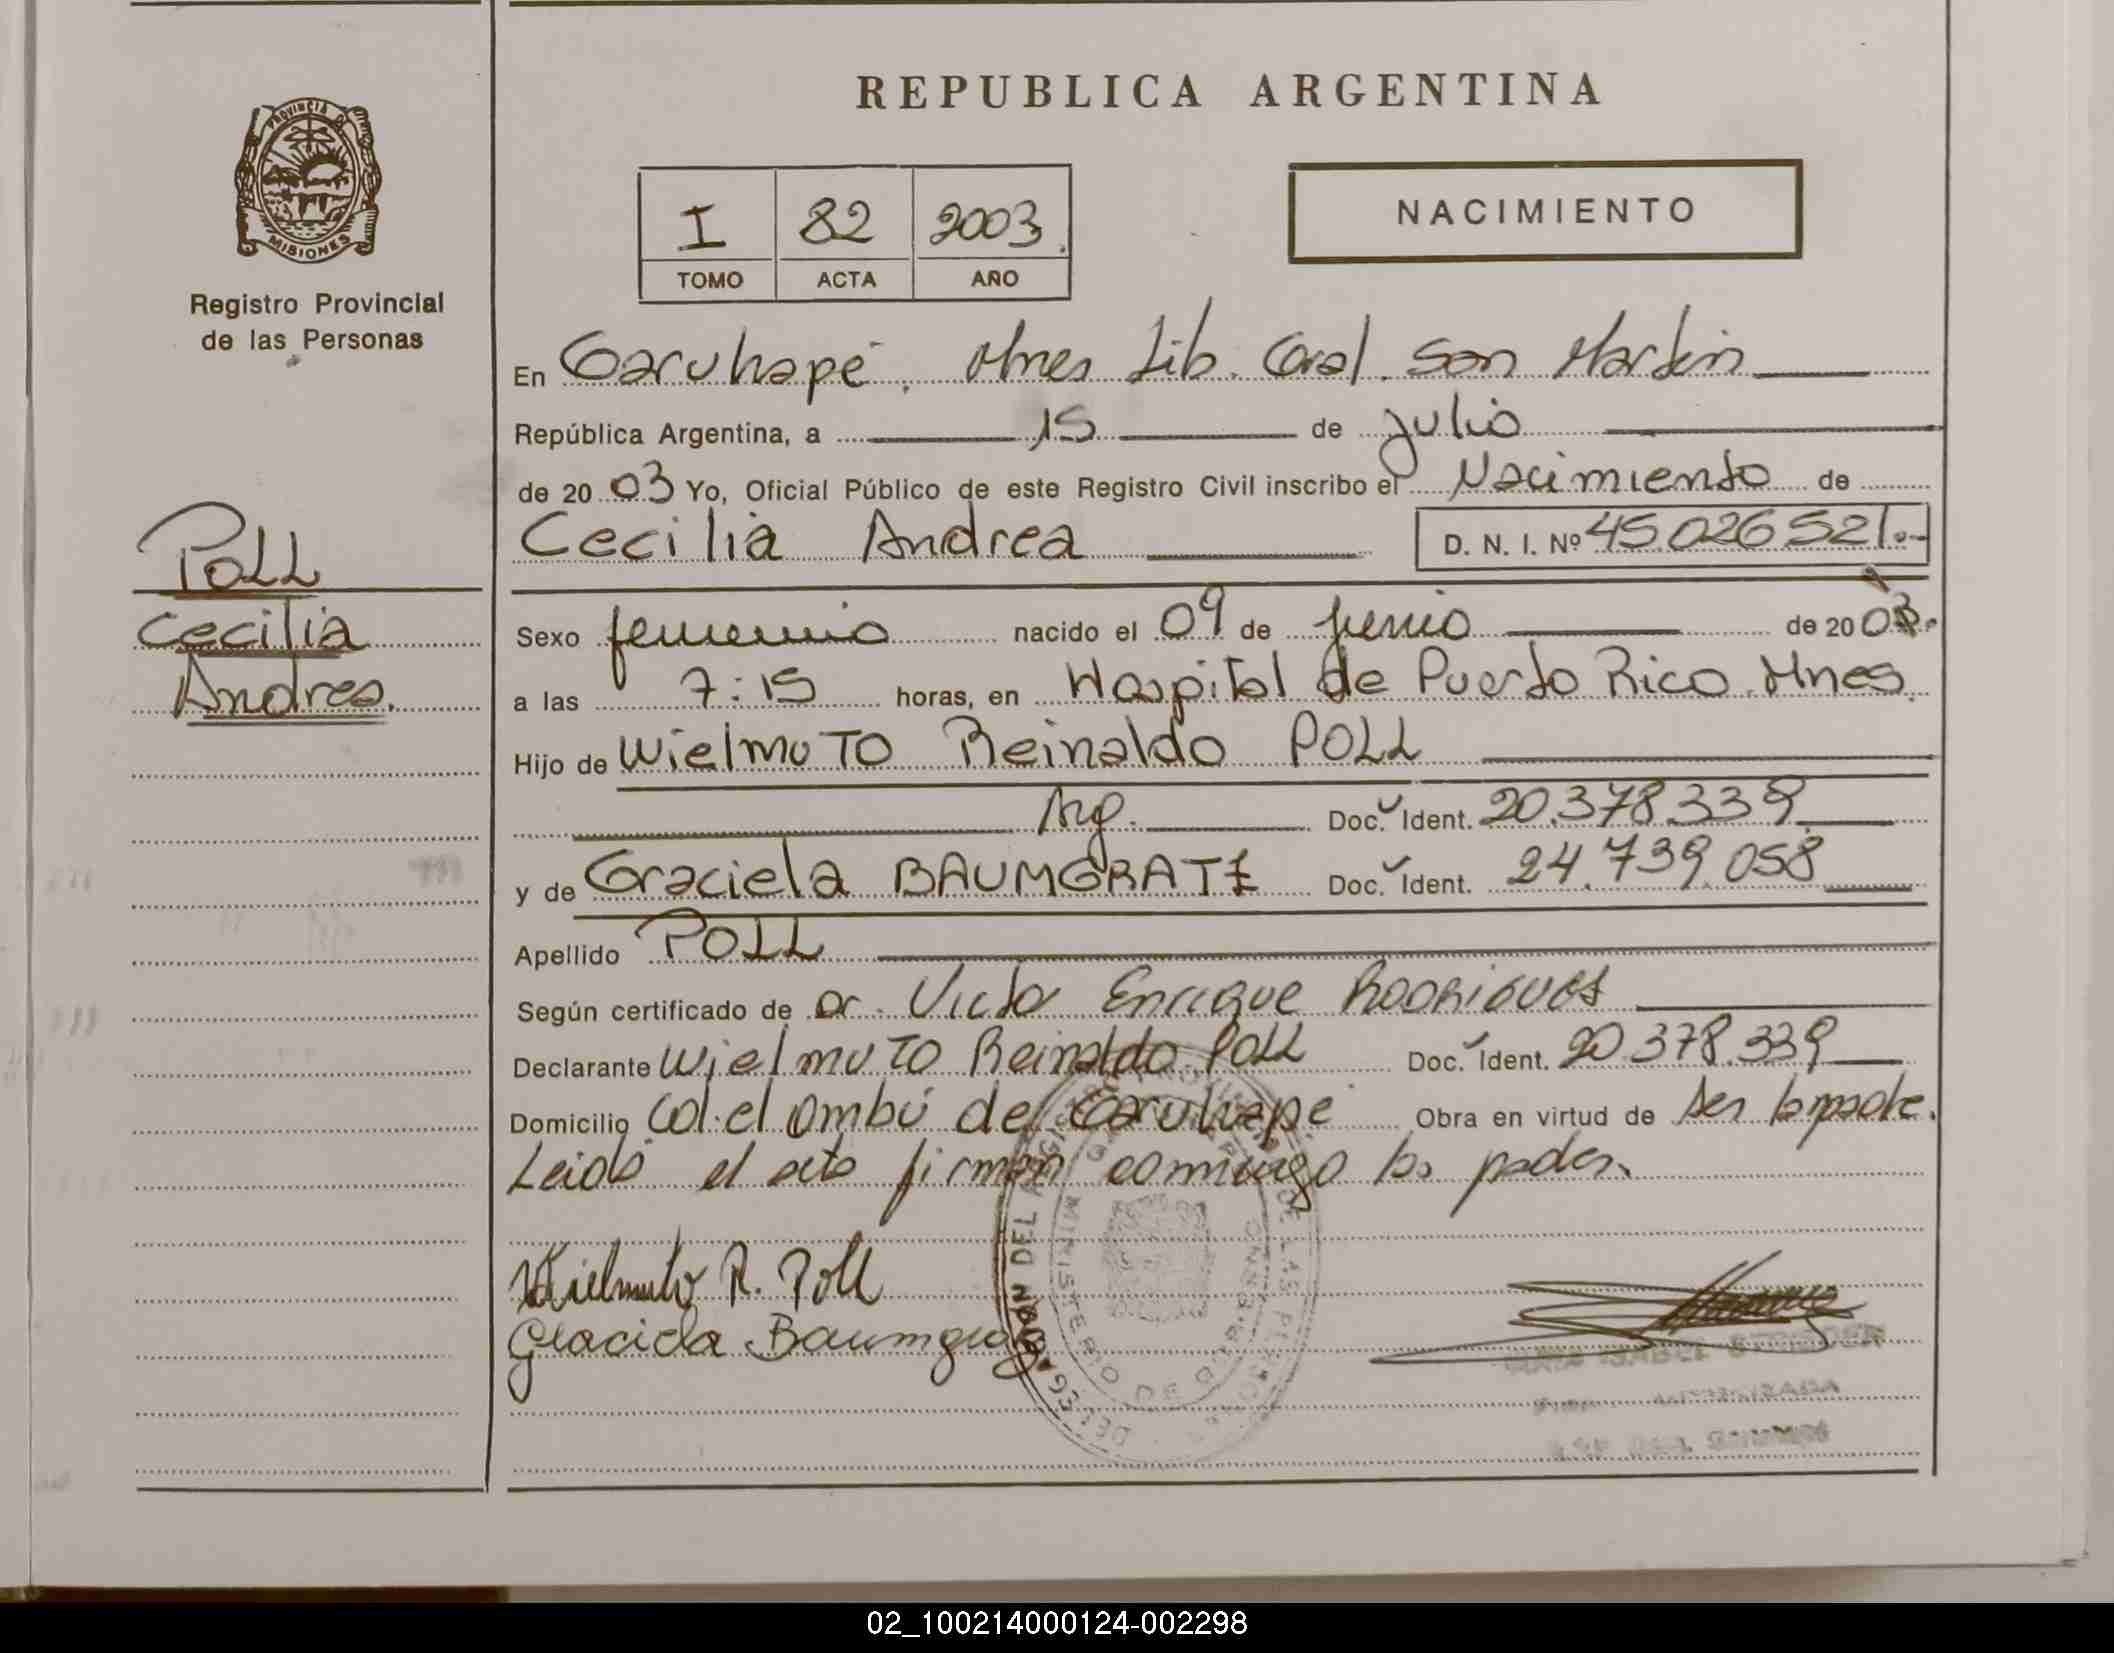 REPUBLICA ARGENTINA
PROVINCIA DE
MISIONES
Registro Provincial
de las Personas
I 82 2003
TOMO ACTA AÑO
NACIMIENTO
En Garuhapé, Mnes Lib. Gral. San Martín
República Argentina, a 15 de julio
de 2003 Yo, Oficial Público de este Registro Civil inscribo el Nacimiento de
Cecilia Andrea D. N. I. Nº 45.026521.-
POLL
Cecilia
Andrea.
Sexo femenino nacido el 09 de junio de 2003.
a las 7:15 horas, en Hospital de Puerto Rico. Mnes.
Hijo de Wielmuto Reinaldo POLL
Arg. Doc. Ident. 20.378.339
y de Graciela BAUMGRATZ Doc. Ident. 24.739.058
Apellido POLL
Según certificado de Dr. Victor Enrique RODRIGUES
Declarante Wielmuto Reinaldo Poll Doc. Ident. 20.378.339
Domicilio Col. el Ombú de Garuhapé Obra en virtud de ser
Leida el acta firman conmigo los padres.
Wielmuto R. Poll
Graciela
MINISTERIO DE GOBIERNO
02_100214000124-002298